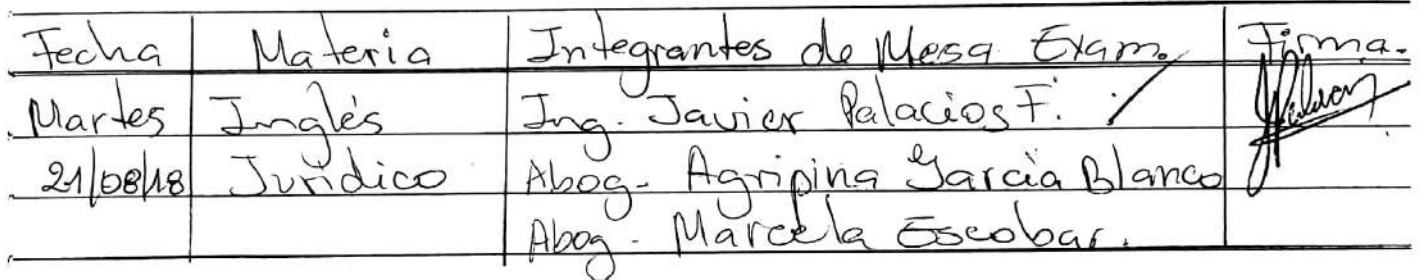 Fecha Materia Integrantes de Mesa Exam. Firma.
Martes Inglés Ing. Javier Palacios F.
21/08/18 Jurídico Abog. Agripina García Blanco
Abog. Marcela Escobar.